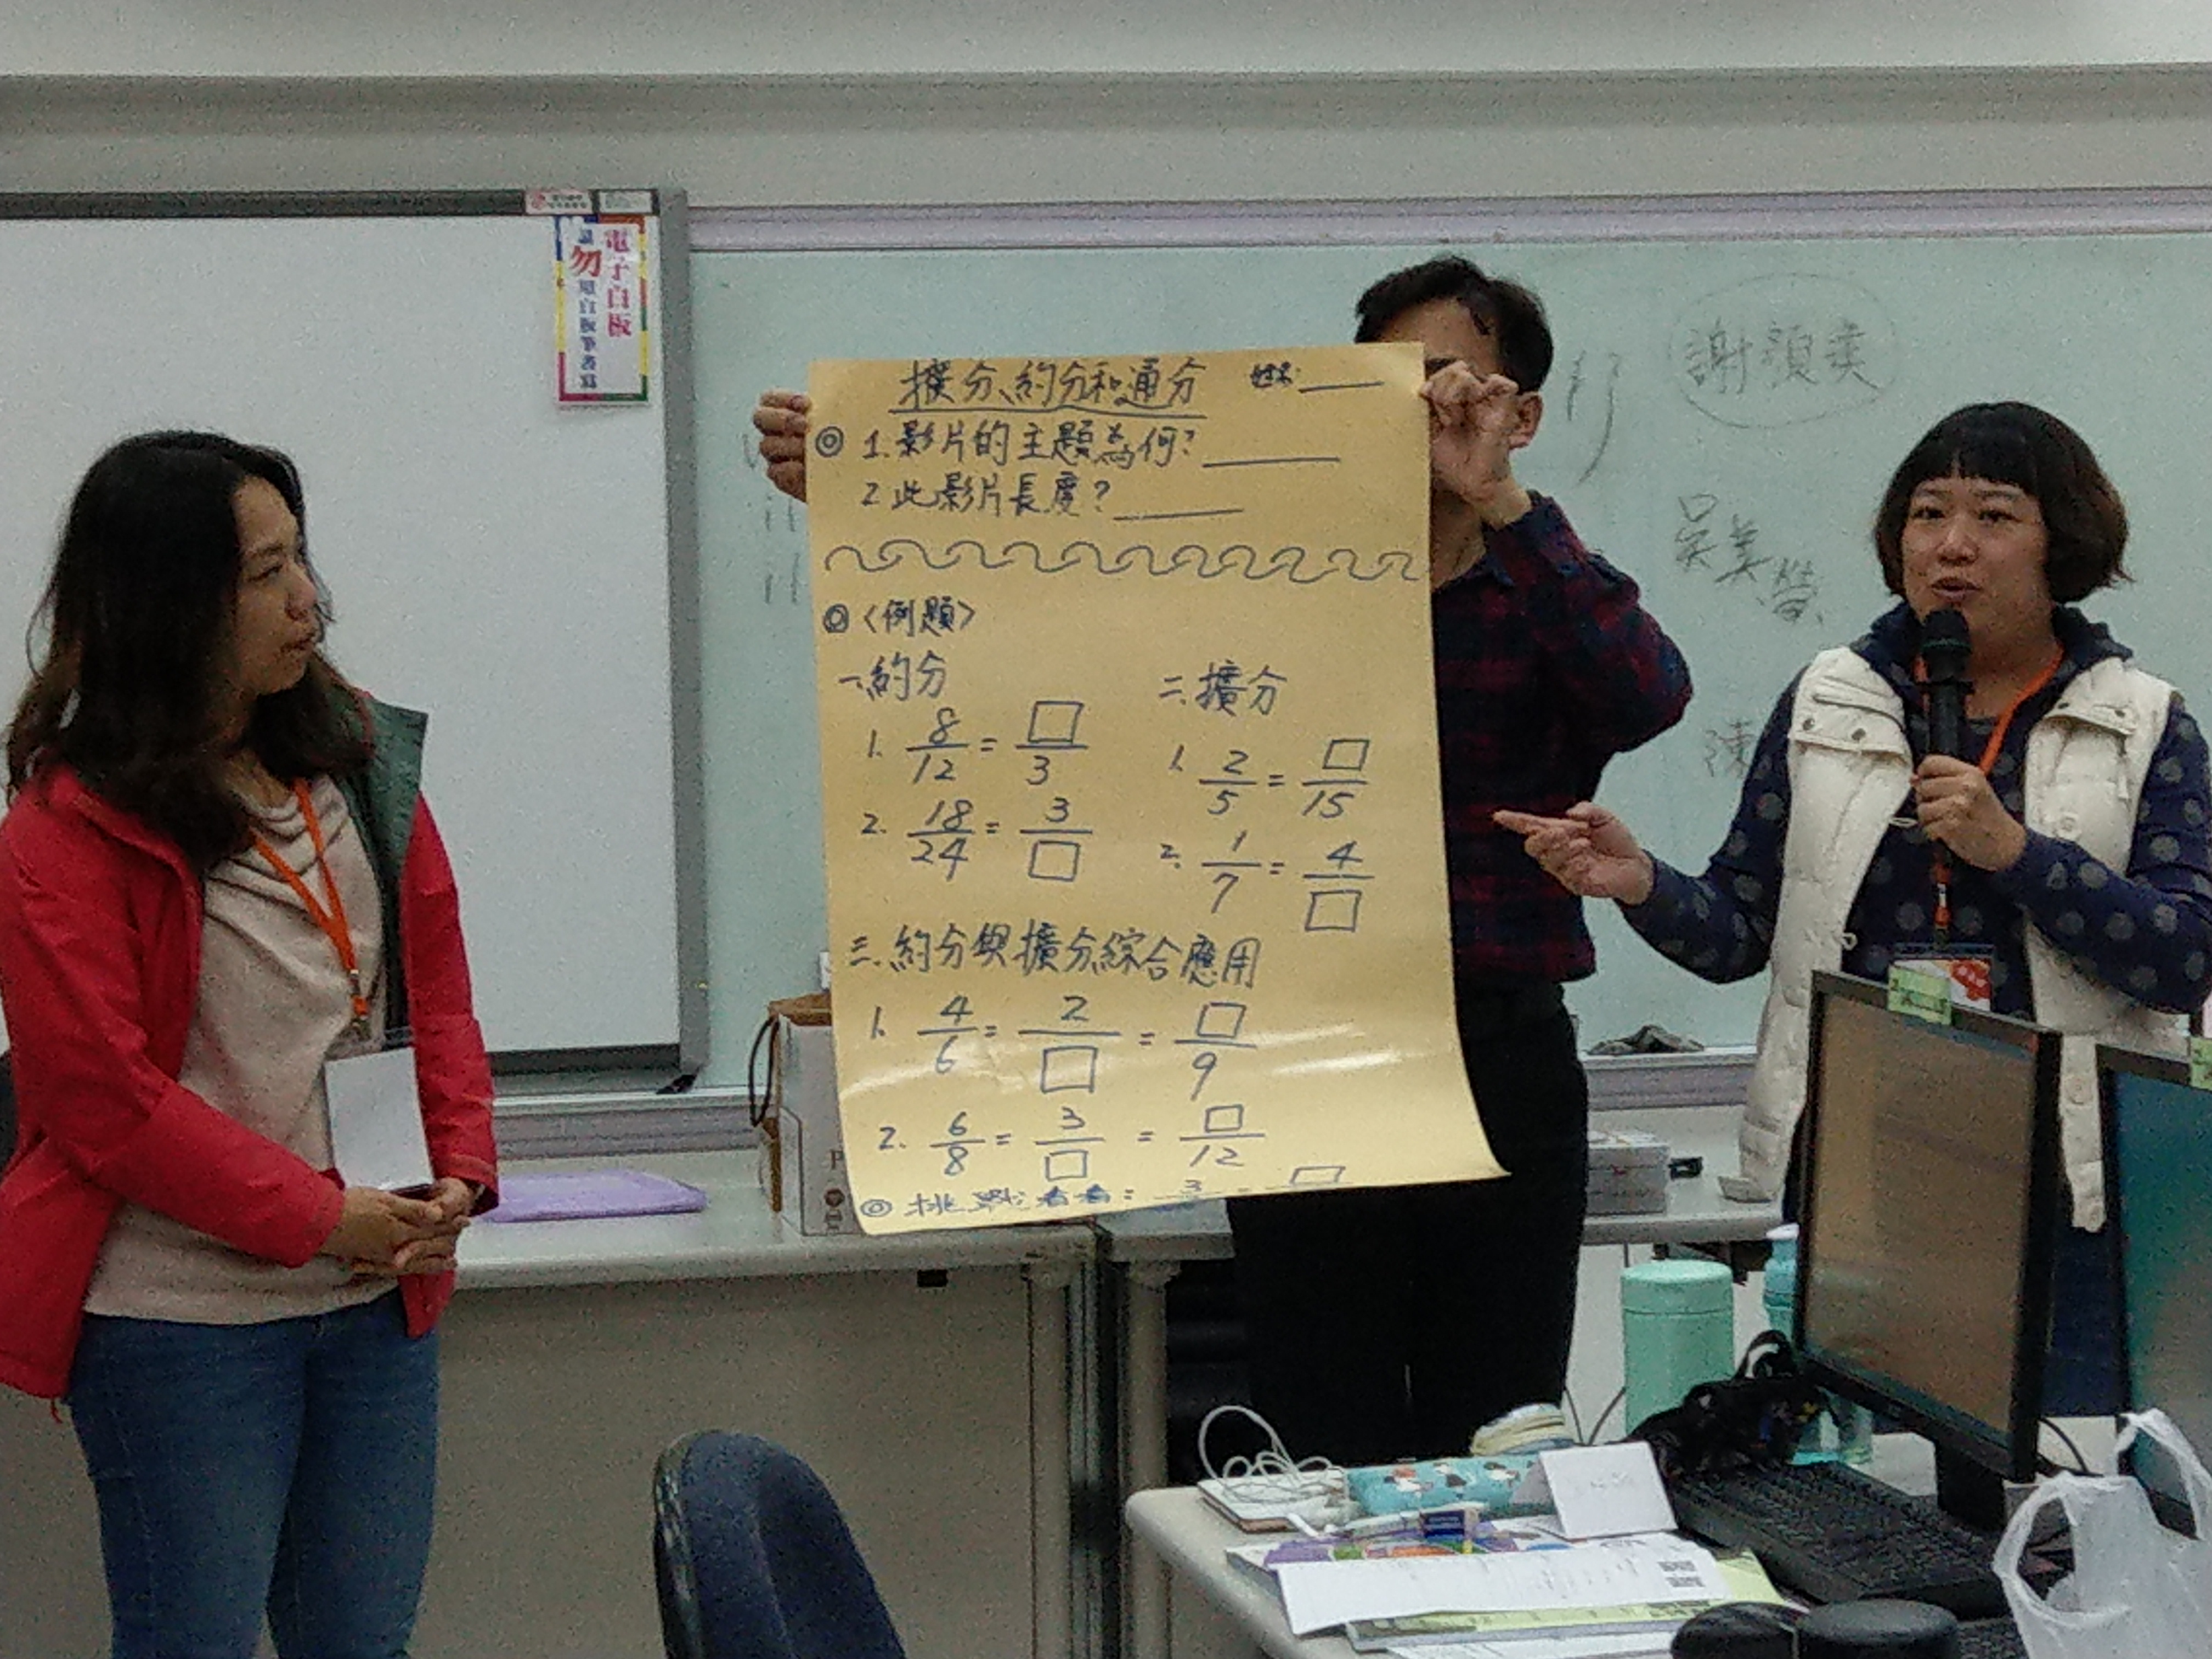 電子白板
請勿用白板筆書寫
擴分、約分和通分 姓名:____
◎ 1.影片的主題為何?____
2.此影片長度?____
◎〈例題〉
一、約分
1. 8/12 = □/3
2. 18/24 = 3/□
二、擴分
1. 2/5 = □/15
2. 1/7 = 4/□
三、約分與擴分綜合應用
1. 4/6 = 2/□ = □/9
2. 6/8 = 3/□ = □/12
◎ 挑戰看看:
謝
吳美
陳